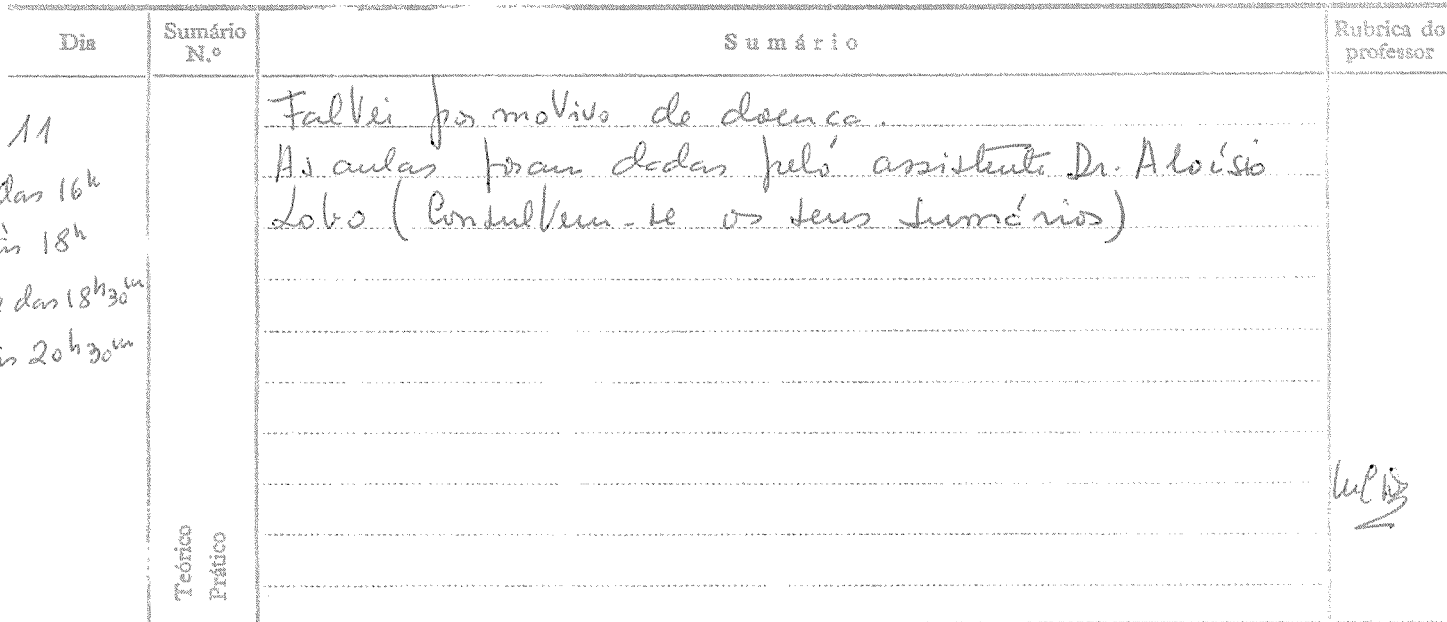 Dia
Sumário N.º
Sumário
Rubrica do professor
11
das 16h
às 18h
e das 18h30m
às 20h30m
Faltei por motivo de doença.
As aulas foram dadas pelo assistente Dr. Aloísio
Lobo (Consultem-se os seus sumários)
Teórico
Prático